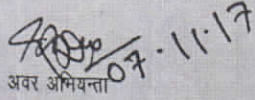 07.11.17
अवर अभियन्ता